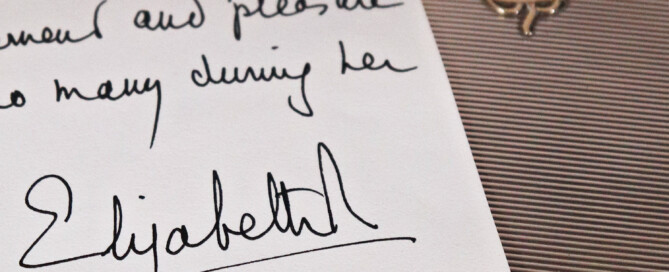 and pleasure
many during her
Elizabeth R